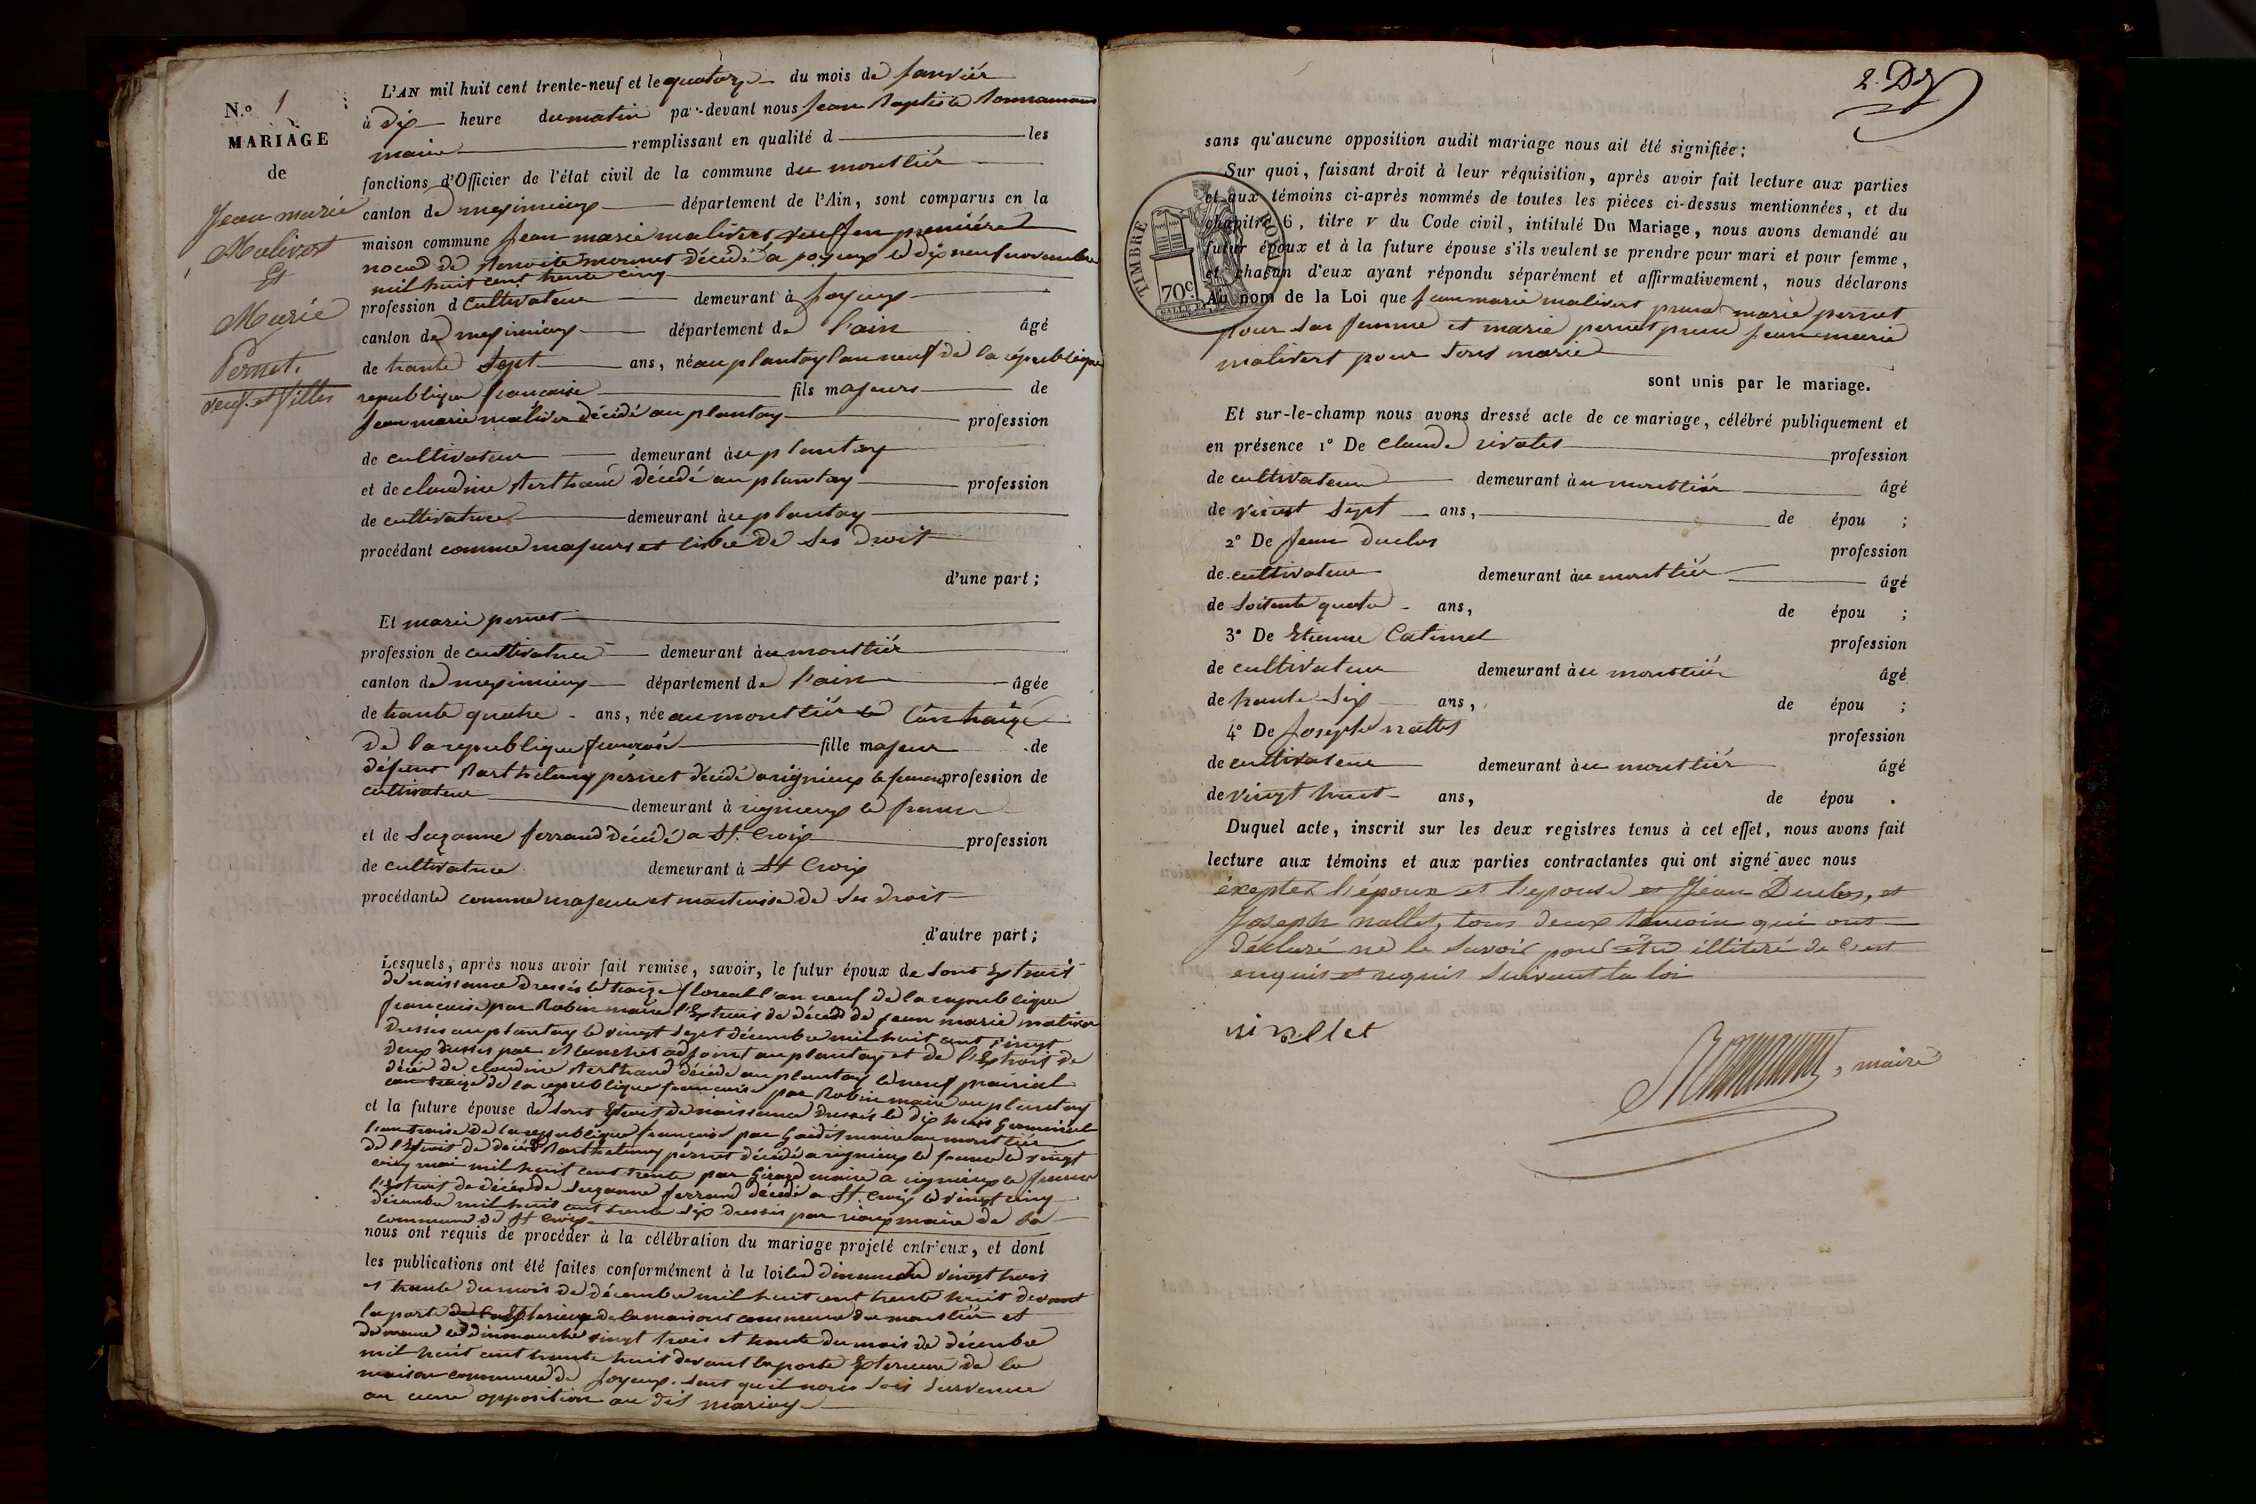 N.º 1
MARIAGE
de
Jean marie
Malivert
Et
Marie
Pernet.
veuf et filles
L'AN mil huit cent trente-neuf et le quatorze du mois de Janvier
à dix heure du matin par-devant nous Jean Baptiste
maire remplissant en qualité d les
fonctions d'Officier de l'état civil de la commune du montlier
canton de meximieux département de l'Ain, sont comparus en la
maison commune Jean marie malivert veuf en premiére
noced de mornet décédé a joyeux le dix neuf novembre
mil huit cent trente cinq
profession d cultivateur demeurant à joyeux
canton de meximieux département de l'ain âgé
de trante sept ans, né au plantay l'an neuf de la république
republique francaise fils majeurs de
Jean marie maliver décédé au plantay profession
de cultivateur demeurant àu plantay
et de claudine Arthaud décédé au plantay profession
de cultivatrice demeurant àu plantay
procédant comme majeurs et libre de ses droit
d'une part;
Et marie pernet
profession de cultivatrice demeurant àu montlier
canton de meximieux département de l'ain âgée
de trante quatre ans, née au montlier le l'an traize
de la republique francaise fille majeur de
défunt Barthelemy pérnet décédé a rignieux le franc profession de
cultivateur demeurant à rignieux le franc
et de Suzanne ferrand décédé a St. Croix profession
de cultivatrice demeurant à St Croix
procédante comme majeure et maitraisse de ses droit
d'autre part;
Lesquels, après nous avoir fait remise, savoir, le futur époux de sont Extrait
de naissance dressés le traize floreal l'an neuf de la republique
francaise par Robin maire l'Extrais de décéd de Jean marie maliver
dresses au plantay le vingt sept décembre mil huit cent vingt
deux dressés par adjoint au plantay et de l'Extrais de
décés de claudine Arthaud décédé au plantay le neuf prairial
l'an traize de la republique francaise par Robin maire au plantay
et la future épouse de sont Extrait de naissance dressés le dix germinal
l'an traize de la republique francaise par maire au montlier
de l'Extrait de décéd Barthelemy pérnet décédé a rignieux le franc le vingt
cinq mai mil huit cent trente par Girard maire a rignieux le franc
l'Extrait de décés de Suzanne ferrand décédé a St. Croix le vingt cinq
décembre mil huit cent trente six dressés par maire de la
commune de St Croix
nous ont requis de procéder à la célébration du mariage projeté entr'eux, et dont
les publications ont été faites conformément à la loi les dimanche vingt trois
et trante du mois de décembre mil huit cent trente huit devant
la porte Exterieur de la maisont commune du montlier et
de meme le dimmanche vingt trois et trante du mois de décembre
mil huit cent trante huit devant la porte Exterieure de la
maison commune de joyeux. sent qu'il nous sois survenue
au cune opposition au dis mariage
2.
sans qu'aucune opposition audit mariage nous ait été signifiée;
Sur quoi, faisant droit à leur réquisition, après avoir fait lecture aux parties
et aux témoins ci-après nommés de toutes les pièces ci-dessus mentionnées, et du
chapitre 6, titre v du Code civil, intitulé Du Mariage, nous avons demandé au
futur époux et à la future épouse s'ils veulent se prendre pour mari et pour femme,
et chacun d'eux ayant répondu séparément et affirmativement, nous déclarons
Au nom de la Loi que Jean marie malivert prend marie pernet
pour sas femme et marie pernet prend Jean marie
malivert pour sons marie
sont unis par le mariage.
TIMBRE ROYAL
70c
Et sur-le-champ nous avons dressé acte de ce mariage, célébré publiquement et
en présence 1º De claude profession
de cultivateur demeurant àu montlier âgé
de vincit sept ans, de épou ;
2º De Jean duclos profession
de cultivateur demeurant àu montlier âgé
de soitente quatre ans, de épou ;
3º De Etienne Catimel profession
de cultivateur demeurant àu montlier âgé
de trante six ans, de épou ;
4º De Joseph nallet profession
de cultivateur demeurant àu montlier âgé
de vingt huit ans, de épou .
Duquel acte, inscrit sur les deux registres tenus à cet effet, nous avons fait
lecture aux témoins et aux parties contractantes qui ont signé avec nous
éxepter l'époux et l'epouse et Jean Duclos, et
Joseph nallet, tous deux temoin qui ont
déclaré ne le savoir pour être illiteré de c'est
enquis et requis suivant la loi
maire